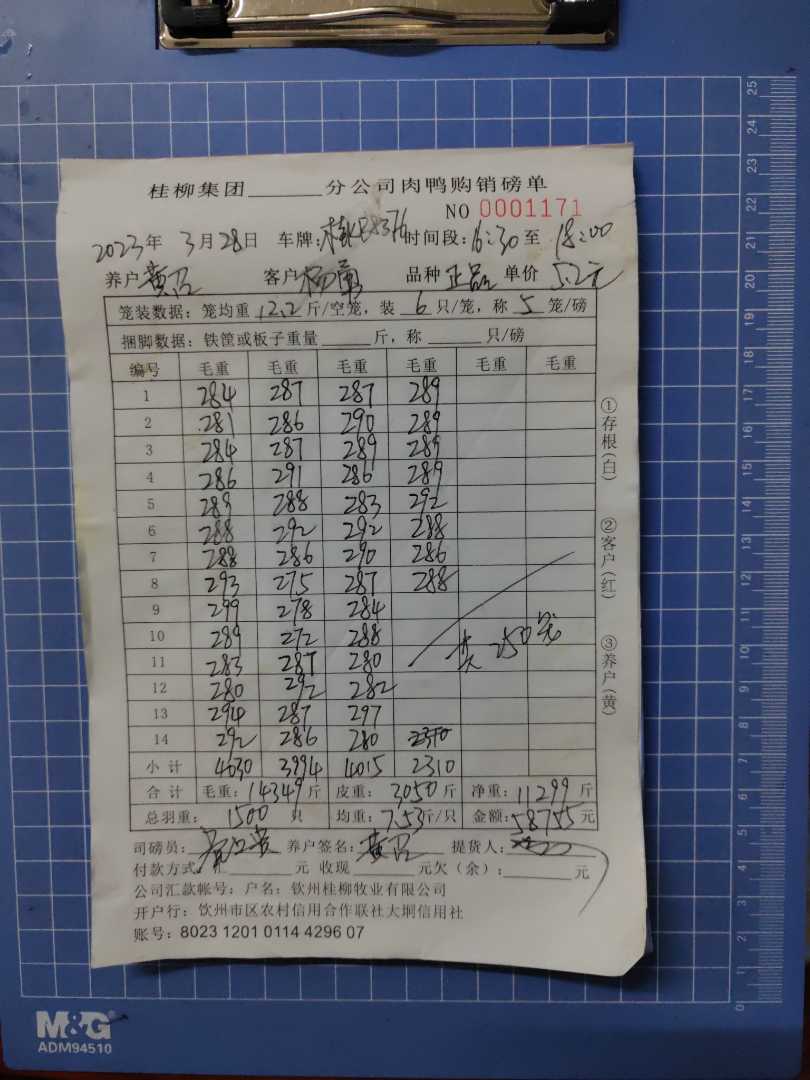 桂柳集团______分公司肉鸭购销磅单
NO 0001171
2023年 3月28日 车牌: 时间段:16:30至 18:00
养户: 黄 客户: 杨 品种 正品 单价 5.2元
笼装数据：笼均重 12.2 斤/空笼，装 6 只/笼，称 5 笼/磅
捆脚数据：铁筐或板子重量______斤，称______只/磅
编号 毛重 毛重 毛重 毛重 毛重 毛重
1 284 287 287 289
2 281 286 290 289
3 284 287 289 289
4 286 291 286 289
5 289 288 283 292
6 288 292 292 288
7 288 286 290 286
8 293 275 287 288
9 299 278 284
10 289 272 288
11 283 287 280
12 280 292 282
13 294 287 297
14 292 286 280
共 250笼
小计 4030 3994 4015 2310
合计 毛重:14349斤 皮重:3050斤 净重:11299斤
总羽重: 1500 只 均重:7.53斤/只 金额:58755元
司磅员: 养户签名: 黄 提货人:
付款方式 ______元 收现______元欠（余）：______元
公司汇款帐号：户名：钦州桂柳牧业有限公司
开户行：钦州市区农村信用合作联社大垌信用社
账号：8023 1201 0114 4296 07
①存根(白)
②客户(红)
③养户(黄)
25
24
23
22
21
20
19
18
17
16
15
14
13
12
11
10
9
8
7
6
5
4
3
2
1
0
M&G
ADM94510